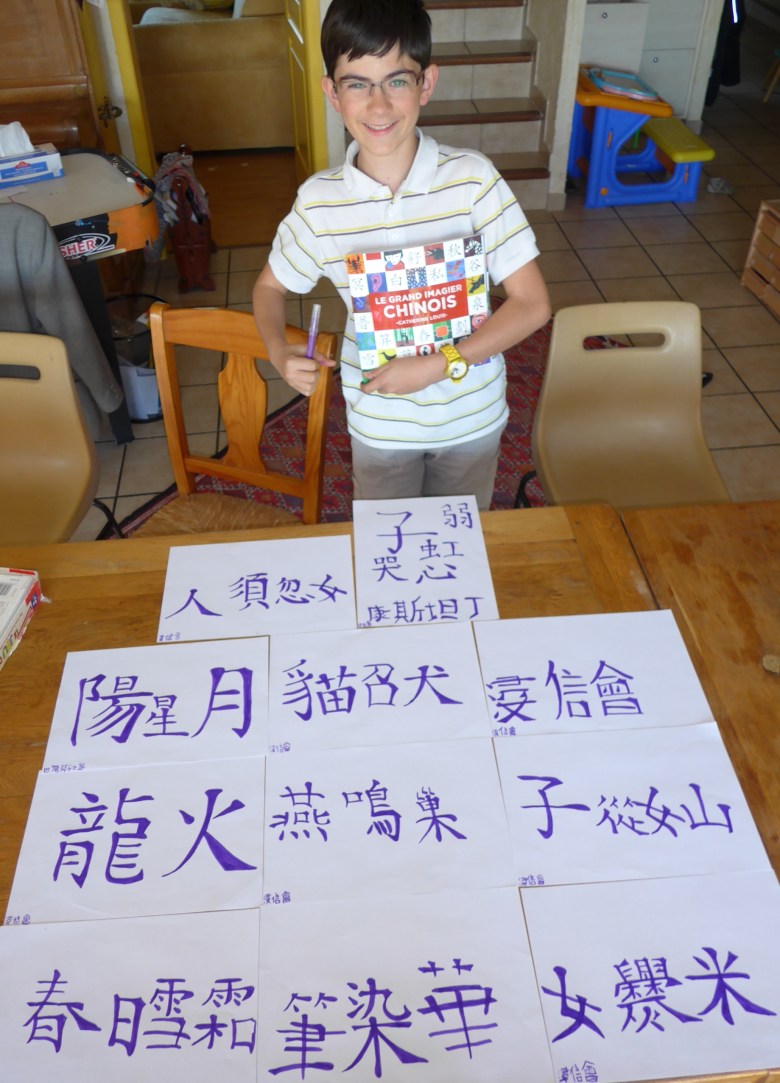 LE GRAND IMAGIER
CHINOIS
-CATHERINE LOUIS-
子 弱
哭 虹
忍
康斯坦丁
人 須 忽 女
陽 星 月
貓 召 犬
信 會
龍 火
燕 鳴 巢
子 從 女 山
春 日 雪 霜
筆 染 華
女 爨 米